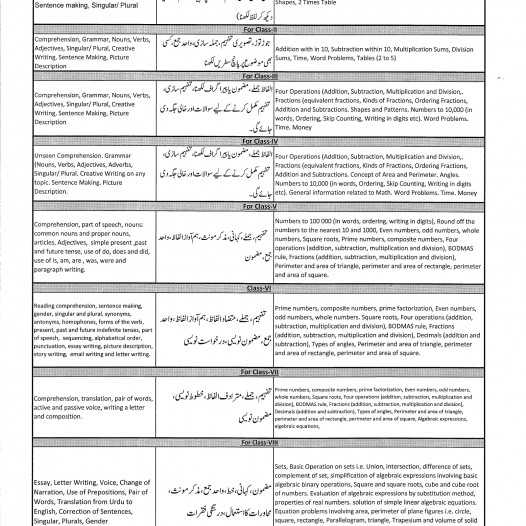 Sentence making, Singular/ Plural
دیکھ کر لفظ لکھنا)
Shapes, 2 Times Table
For Class-II
Comprehension, Grammar, Nouns, Verbs,
Adjectives, Singular/ Plural, Creative
Writing, Sentence Making, Picture
Description
جوڑ توڑ، تصویری تفہیم، جملہ سازی، واحد جمع، کسی
بھی موضوع پر پانچ سطریں لکھنا
Addition with in 10, Subtraction within 10, Multiplication Sums, Division
Sums, Time, Word Problems, Tables (2 to 5)
For Class-III
Comprehension, Grammar, Nouns, Verbs,
Adjectives, Singular/ Plural, Creative
Writing, Sentence Making, Picture
Description.
الفاظ جملے، مضمون یا پیراگراف لکھنا، تفہیم سازی،
تفہیم مکمل کرنے کے لیے سوالات اور خالی جگہ دی
جائے گی۔
Four Operations (Addition, Subtraction, Multiplication and Division,.
Fractions (equivalent fractions, Kinds of Fractions, Ordering Fractions,
Addition and Subtractions. Shapes and Patterns. Numbers to 10,000 (in
words, Ordering, Skip Counting, Writing in digits etc). Word Problems.
Time. Money
For Class-IV
Unseen Comprehension. Grammar
(Nouns, Verbs, Adjectives, Adverbs,
Singular/ Plural. Creative Writing on any
topic. Sentence Making, Picture
Description.
الفاظ جملے، مضمون یا پیراگراف لکھنا، تفہیم سازی،
تفہیم مکمل کرنے کے لیے سوالات اور خالی جگہ دی
جائے گی۔
Four Operations (Addition, Subtraction, Multiplication and Division,.
Fractions (equivalent fractions, Kinds of Fractions, Ordering Fractions,
Addition and Subtractions. Concept of Area and Perimeter. Angles.
Numbers to 10,000 (in words, Ordering, Skip Counting, Writing in digits
etc). General information related to Math. Word Problems. Time. Money
For Class-V
Comprehension, part of speech, nouns:
common nouns and proper nouns,
articles, Adjectives, simple present ,past
and future tense, use of do, does and did,
use of is, am, are , was, were and
paragraph writing.
تفہیم، جملے، کہانی، مذکر مونث، ہم آواز الفاظ، واحد
جمع، مضمون
Numbers to 100 000 (in words, ordering, writing in digits), Round off the
numbers to the nearest 10 and 1000, Even numbers, odd numbers, whole
numbers, Square roots, Prime numbers, composite numbers, Four
operations (addition, subtraction, multiplication and division), BODMAS
rule, Fractions (addition, subtraction, multiplication and division),
Perimeter and area of triangle, perimeter and area of rectangle, perimeter
and area of square.
Class-VI
Reading comprehension, sentence making,
gender, singular and plural, synonyms,
antonyms, homophones, forms of the verb,
present, past and future indefinite tenses, part
of speech, sequencing, alphabetical order,
punctuation, essay writing, picture description,
story writing, email writing and letter writing.
تفہیم، جملے، متضاد الفاظ، ہم آواز الفاظ، واحد
جمع، مضمون نویسی، درخواست نویسی
Prime numbers, composite numbers, prime factorization, Even numbers,
odd numbers, whole numbers. Square roots, Four operations (addition,
subtraction, multiplication and division), BODMAS rule, Fractions
(addition, subtraction, multiplication and division), Decimals (addition and
subtraction), Types of angles, Perimeter and area of triangle, perimeter
and area of rectangle, perimeter and area of square.
For Class-VII
Comprehension, translation, pair of words,
active and passive voice, writing a letter
and composition.
تفہیم، جملے، مترادف الفاظ، خطوط نویسی،
مضمون نویسی
Prime numbers, composite numbers, prime factorization, Even numbers, odd numbers,
whole numbers, Square roots, Four operations (addition, subtraction, multiplication and
division), BODMAS rule, Fractions (addition, subtraction, multiplication and division),
Decimals (addition and subtraction), Types of angles, Perimeter and area of triangle,
perimeter and area of rectangle, perimeter and area of square, Algebraic expressions,
algebraic equations,
For Class-VIII
Essay, Letter Writing, Voice, Change of
Narration, Use of Prepositions, Pair of
Words, Translation from Urdu to
English, Correction of Sentences,
Singular, Plurals, Gender
مضمون، کہانی، خط، واحد جمع، مذکر مونث،
محاورات کا استعمال، درستگی فقرات
Sets, Basic Operation on sets i.e. Union, intersection, difference of sets,
complement of set, simplification of algebraic expressions involving basic
algebraic binary operations, Square and square roots, cube and cube root
of numbers. Evaluation of algebraic expressions by substitution method,
properties of real numbers. solution of simple linear algebraic equations.
Equation problems involving area, perimeter of plane figures i.e. circle,
square, rectangle, Parallelogram, triangle, Trapesium and volume of solid